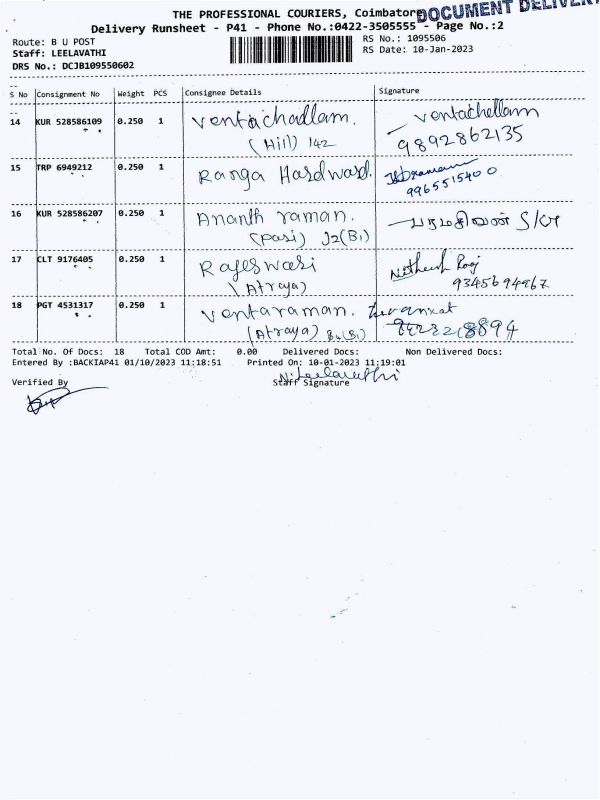 THE PROFESSIONAL COURIERS, Coimbatore
DOCUMENT DELIVERY
Delivery Runsheet - P41 - Phone No.:0422-3505555 - Page No.:2
Route: B U POST
RS No.: 1095506
Staff: LEELAVATHI
RS Date: 10-Jan-2023
DRS No.: DCJB109550602
S No Consignment No Weight PCS Consignee Details Signature
14 KUR 528586109 0.250 1 Ventachadlam. Ventachellam
(Hill) 142 9892862135
15 TRP 6949212 0.250 1 Ranga Hardward.
9965515400
16 KUR 528586207 0.250 1 Ananth raman.
(Pari) J2(B1)
17 CLT 9176405 0.250 1 Rajeswari Nithesh Raj
(Atraya) 9345694967
18 PGT 4531317 0.250 1 Ventaraman.
(Atraya) B4(B1)
Total No. Of Docs: 18 Total COD Amt: 0.00 Delivered Docs: Non Delivered Docs:
Entered By :BACKIAP41 01/10/2023 11:18:51 Printed On: 10-01-2023 11:19:01
N. Leelavathi
Verified By Staff Signature